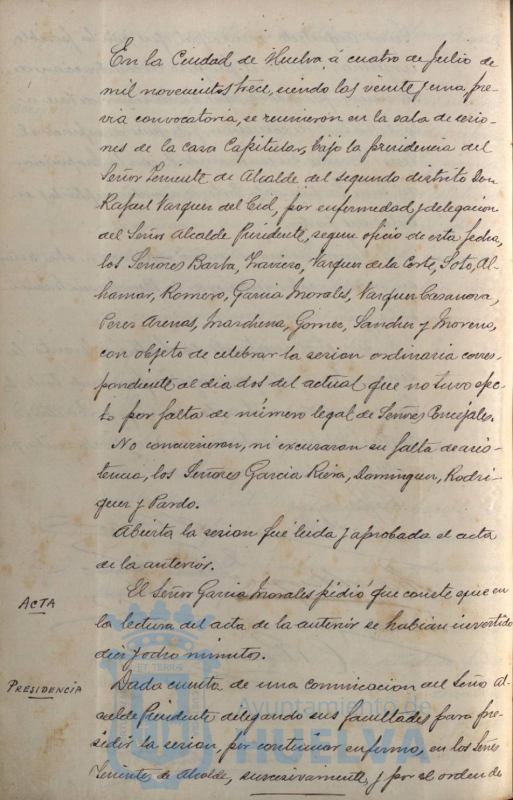 En la Ciudad de Huelva á cuatro de Julio de
mil novecientos trece, siendo las veinte y una pre
via convocatoria, se reunieron en la sala de sesio
nes de la casa Capitular, bajo la presidencia del
Señor Teniente de Alcalde del segundo distrito Don
Rafael Vazquez del Cid, por enfermedad y delegacion
del Señor Alcalde Presidente, segun oficio de esta fecha,
los Señores Barba, Traviero, Vazquez de la Corte, Soto, Al-
hamar, Romero, Garcia Morales, Vazquez Casanova,
Perez Arenas, Marchena, Gomez, Sanchez y Moreno,
con objeto de celebrar la sesion ordinaria corres-
pondiente al dia dos del actual que no tuvo efec-
to por falta de número legal de Señores Concejales.
No concurrieron, ni excusaron su falta de asis-
tencia, los Señores Garcia Riera, Dominguez, Rodri
guez y Pardo.
Abierta la sesion fué leida y aprobada el acta
de la anterior.
ACTA
El Señor Garcia Morales pidió que conste que en
la lectura del acta de la anterior se habian invertido
diez y ocho minutos.
PRESIDENCIA
Dada cuenta de una comunicacion del Señor Al
calde Presidente delegando sus facultades para pre
sidir la sesion, por continuar enfermo, en los Señores
Tenientes de Alcalde, sucesivamente, y por el orden de
ET TERRÆ
Ayuntamiento de
HUELVA